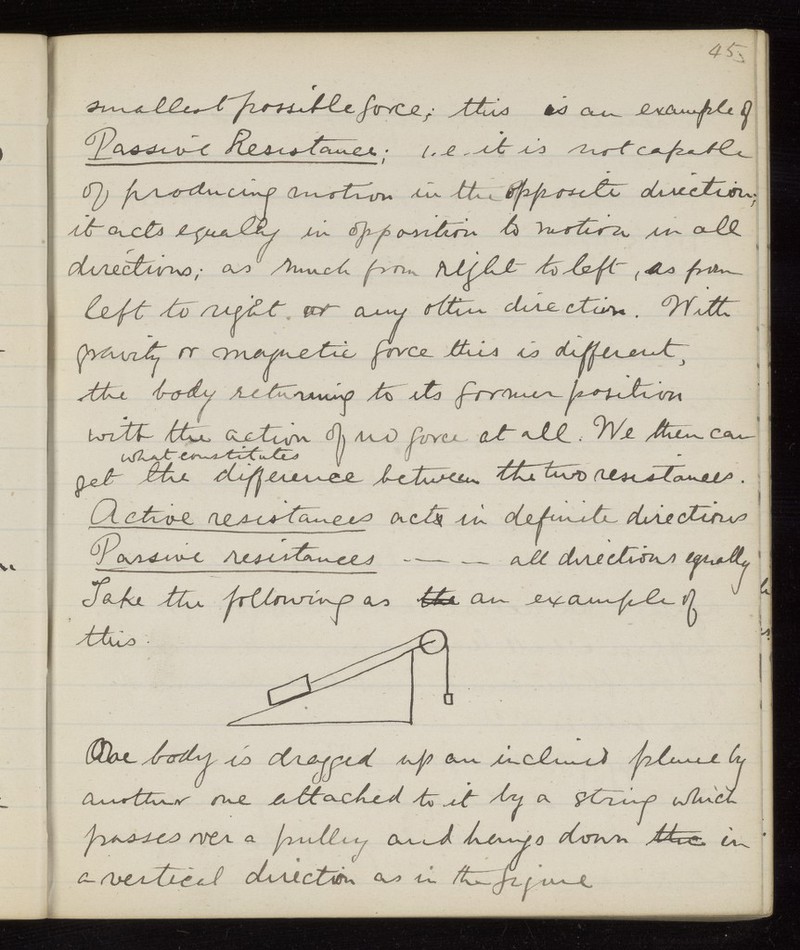 45
smallest possible force; this is an example of
Passive Resistance; i.e. it is not capable
of producing motion in the opposite direction;
it acts equally in opposition to motion in all
directions; as much from right to left, as from
left to right or any other direction. With
gravity or magnetic force this is different,
the body returning to its former position
with the action of no force at all. We then can
what constitutes
get the difference between the two resistances.
Active resistances acts in definite directions
Passive resistances — — — all directions equally
Take the following as the an example of
this.
One body is dragged up an inclined plane by
another one attached to it by a string which
passes over a pulley and hangs down the in
a vertical direction as in the figure